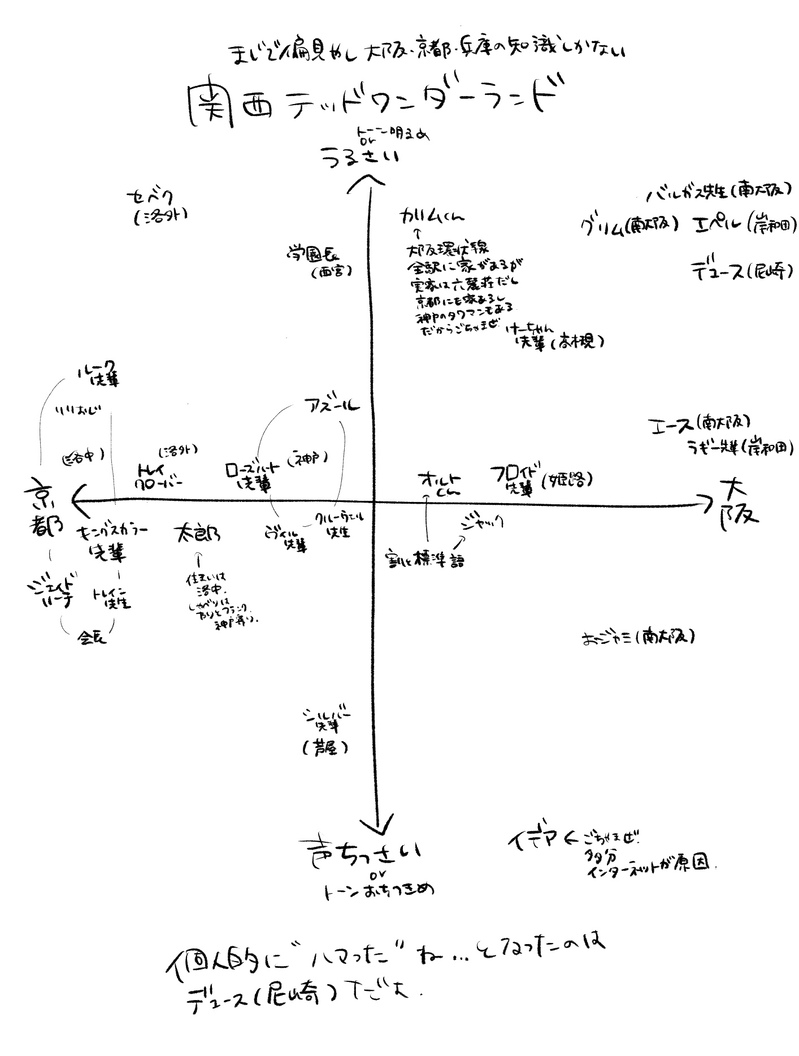 まじで偏見やし 大阪・京都・兵庫の知識しかない
関西テッドワンダーランド
トーン明るめ
or
うるさい
セベク
(洛外)
学園長
(西宮)
カリムくん
↑
大阪環状線
全駅に家があるが
実家は六麓荘だし
京都にも家あるし
神戸のタワマンもある
だからごちゃまぜ
けーちゃん
先輩(高槻)
バルガス先生(南大阪)
グリム(南大阪) エペル(岸和田)
デュース(尼崎)
ルーク
先輩
リリおじ
(洛中)
トレイ
クローバー
(洛外)
アズール
ローズハート
先輩
(神戸)
オルト
くん
フロイド
先輩(姫路)
エース(南大阪)
ラギー先輩(岸和田)
京都
大阪
キングスカラー
先輩
太郎
↑
住まいは
洛中.
しゃべりは
わりとフランク.
神戸寄り.
ヴィル
先輩
クルーウェル
先生
ジャック
割と標準語
ジェイド
リーチ
トレイン
先生
会長
おジャミ(南大阪)
シルバー
先輩
(芦屋)
声ちっさい
or
トーンおちつきめ
イデア ← ごちゃまぜ.
多分
インターネットが原因.
個人的に"ハマった"ね…となったのは
デュース(尼崎)すごよ.